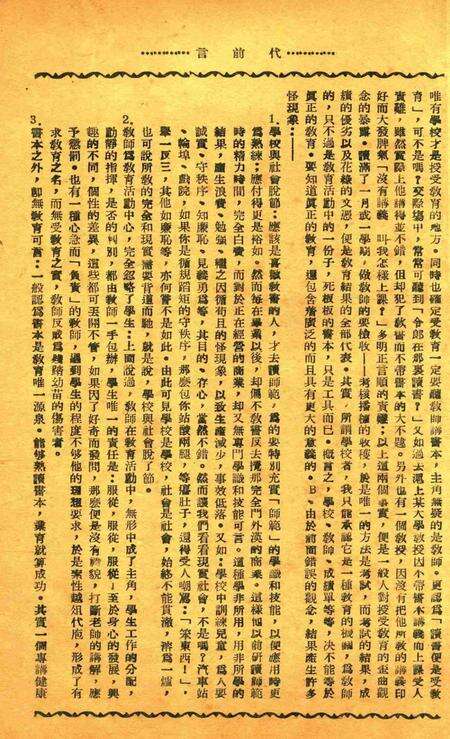 代前言
唯有學校才是授受敎育的地方。同時也確定受敎育一定要聽敎師講書本,主角無疑的是敎師。更認為「讀書便是受敎
育」,可不是嗎?交際塲中,常常可聽到「令郎在那裏讀書?」又如過去滬上某大學敎授因不帶書本講義而上課受人
責難,雖然實際上他講得並不錯,但却犯了敎書而不帶書本的大不韙。另外也有一個敎授,因沒有把他所敎的講義印
好而大發脾氣「沒有講義,叫我怎樣上課?」多明正言順的責難;以上這兩個事實,便是一般人對授受敎育的歪曲觀
念的暴露。讀滿了一月或一學期,做敎師的要檢收——考核播種的收穫,於是唯一的方法是考試,而考試的結果,成
績的優劣以及花綠的文憑,便是敎育結果的全部代表。其實,所謂學校者,我人祗能承認它是一種敎育的機構,為敎師
的,只不過是敎育活動中的一份子,死板板的書本,只是工具而已。槪言之,學校、敎師、成績單等等,決不能等於
眞正的敎育。要知道眞正的敎育,還包含着廣泛之的而且具有更大的意義的。B、由於前面錯誤的觀念,結果產生許多
怪現象:——
1.學校與社會脫節:應該是喜歡敎書的人,才去讀師範,為的要特別充實「師範」的學識和技能,以便應用時更
為熟練;應付得更是裕如。然而每在畢業以後,却偏不敎書反去攪那完全門外漢的商業。這樣他以前硏讀師範
時的精力時間,完全白費,而對於正在經營的商業,却又無專門學識和技能可言。這種學非所用,用非所學的
結果,產生浪費、勉强、曚之因循苟且的怪現象,以致生產減少,事效低落。又如:學校中訓練兒童,為人要
誠實、守秩序、知廉恥、見義勇為等,其目的、存心,當然不錯。然而讓我們看看現實社會,不是嗎?汽車站
、輪埠、戲院,如果你是循規蹈矩的守秩序,那麼包你站酸兩腿,等壞肚子,還得受人嘲罵:「笨東西!」,
舉一反三,其他如廉恥等,亦何嘗不是如此。由此可見學校是學校,社會是社會,始終不能貫澈,濟為一爐,
也可說所敎的完全和現實需要背道而馳,就是說,學校與社會脫了節。
2.敎師為敎育活動中心,完全忽略了學生:上面說過,敎師在敎育活動中,無形中成了主角,學生工作的分配,
動靜的指揮,是否的判別,都由敎師一手包辦,學生唯一的責任是:服從,服從,服從!至於身心的發展,興
趣的不同,個性的差異,這些都可丟開不管,如果因了好奇而發問,那麼便是沒有禮貌,打斷老師的講解,應
予懲罰。也有一種心急而「負責」的敎師,遇到學生的程度不够他的理想要求,於是索性越俎代庖,形成了有
求敎育之名,而無受敎育之實,敎師反成為殘踏幼苗的傷害者。
3.書本之外,卽無敎育可言:一般認為書本是敎育唯一源泉。能够熟讀書本,業育就算成功。其實一個專講健康